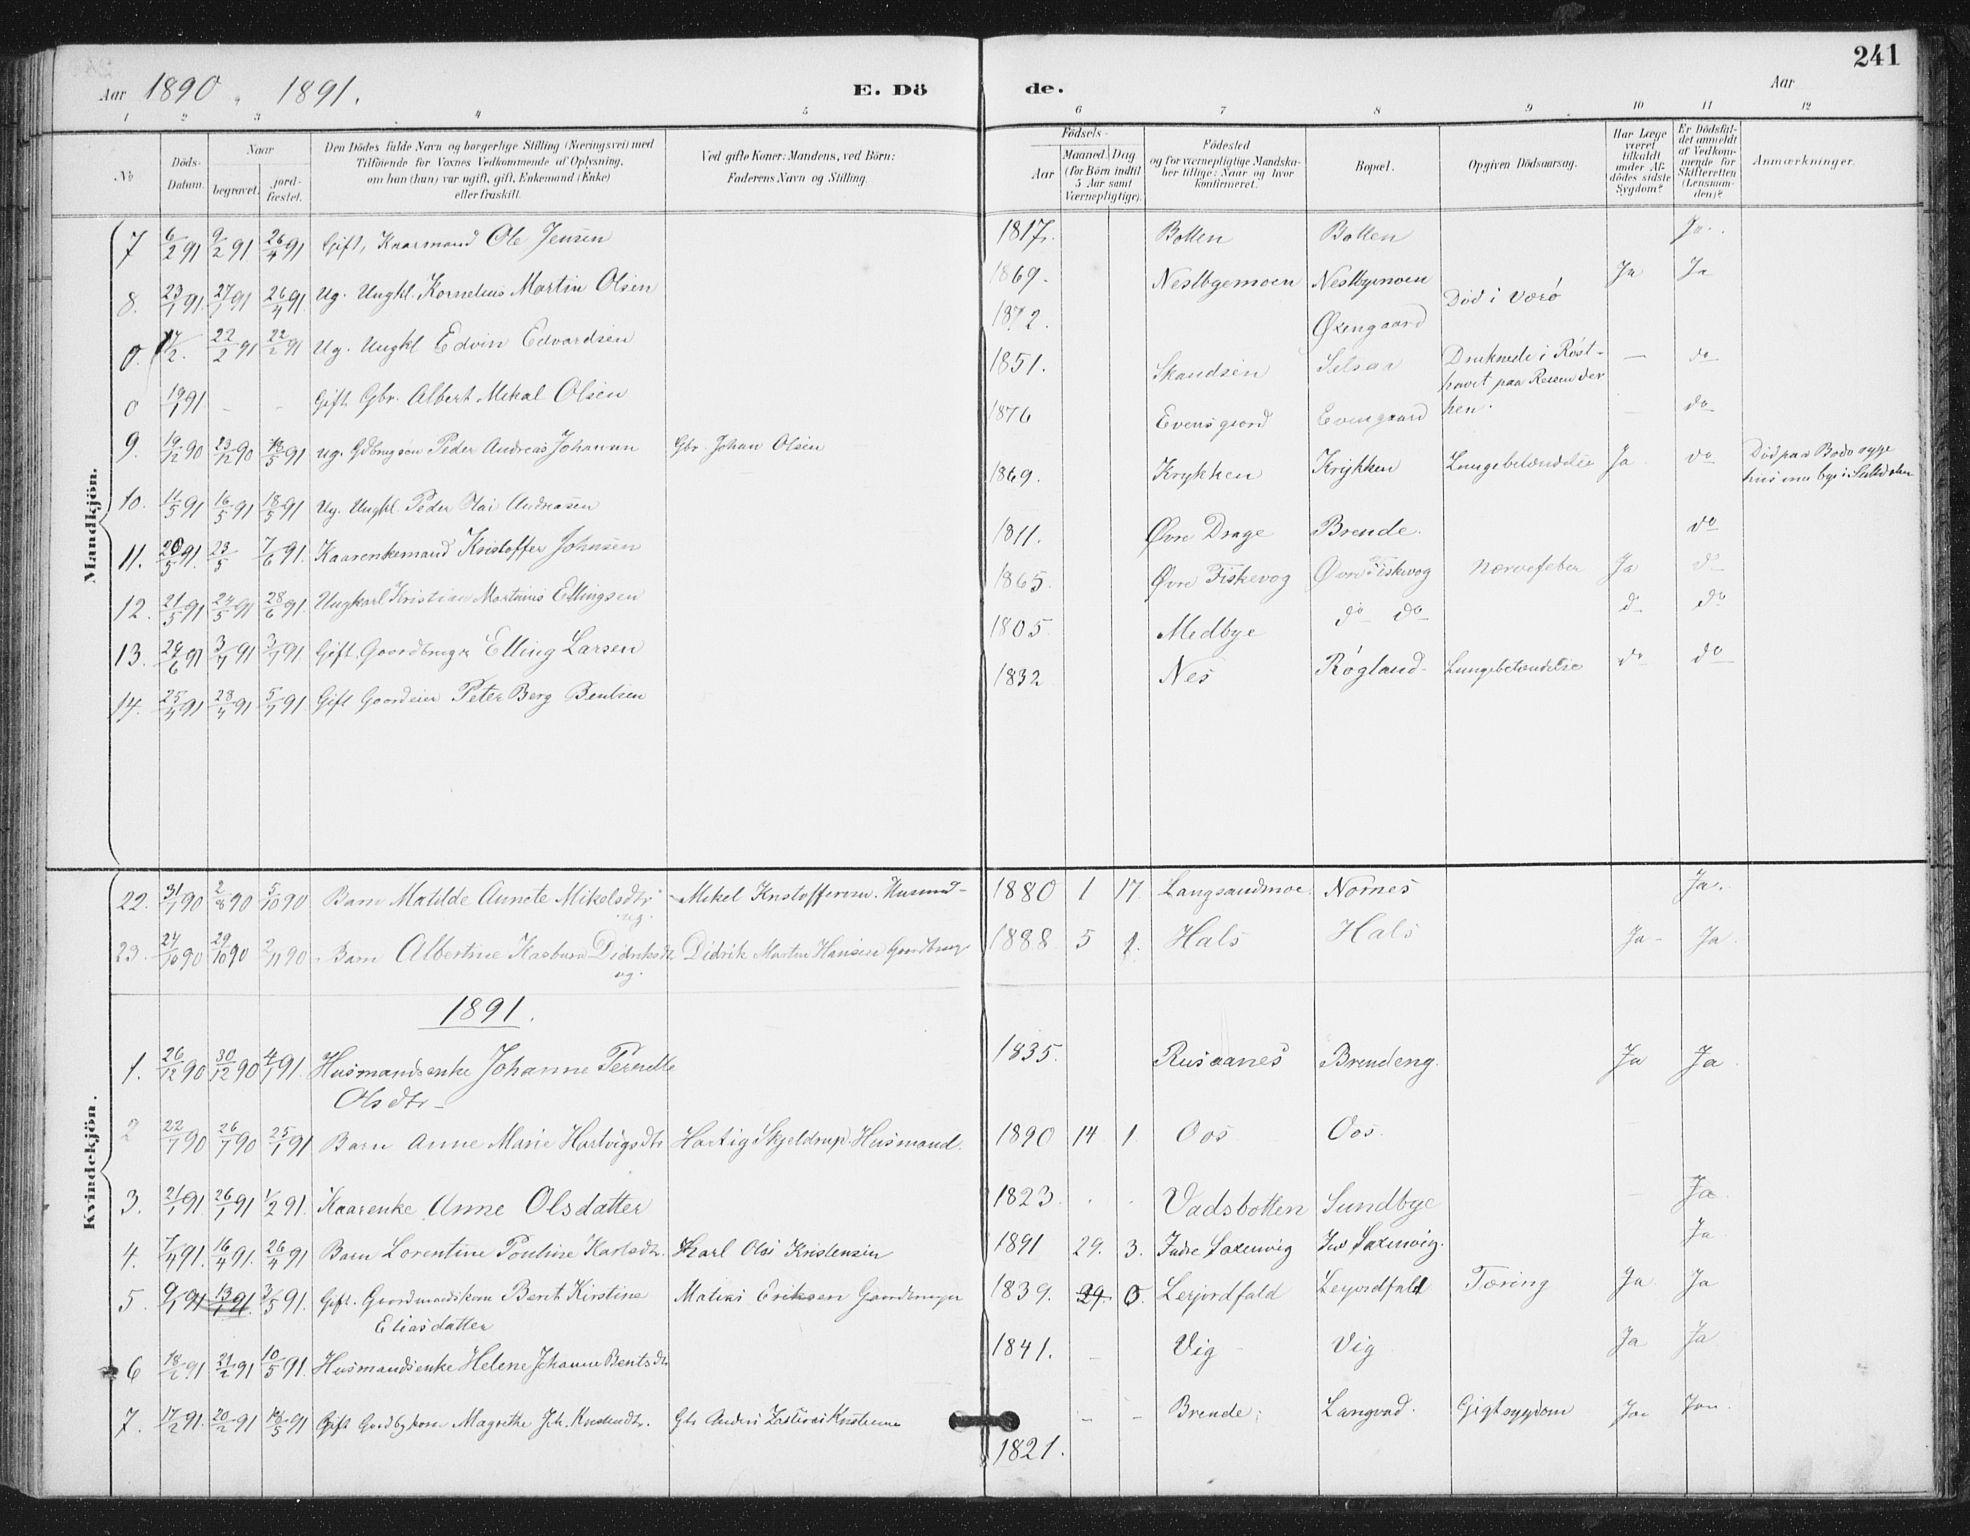 241
Aar 1890 " 1891.
E. Dö de.
Aar
1 2 3 4 5 6 7 8 9 10 11 12
No
Döds-Datum.
Naar
begravet.
jord-fæstet.
Den Dödes fulde Navn og borgerlige Stilling (Næringsvei) med
Tilföiende for Voxnes Vedkommende af Oplysning,
om han (hun) var ugift, gift, Enkemand (Enke)
eller fraskilt.
Ved gifte Koner: Mandens, ved Börn:
Faderens Navn og Stilling.
Födsels-
Aar
Maaned. Dag
(for Börn indtil
5 Aar samt
Værnepligtige).
Födested
og for værnepligtige Mandska-
ber tillige: Naar og hvor
konfirmeret.
Bopæl.
Opgiven Dödsaarsag.
Har Læge
været
tilkaldt
under Af-
dödes sidste
Sygdom?
Er Dödsfal-
det anmeldt
af Vedkom-
mende for
Skifteretten
(Lensman-
den)?
Anmærkninger.
Mandkjön.
7 6/2 91 9/2 91 26/4 91 Gift, Kaarmand Ole Jensen 1817. Botten Botten Ja.
8. 23/1 91 27/1 91 26/4 91 Ug. Ungkl. Kornelius Martin Olsen 1869. Nestbyemoen Nestbyemoen Ja Ja
0. 17/2. 22/2 91 22/2 91 Ug. Ungkl Edvin Edvardsen 1872. Øxengaard Död i Værö
0 19/1 91 - - Gift Gbr. Albert Mikal Olsen 1851. Skandsen Setsaa Druknede i Röst-
havet paa Reisen der
hen. - do
9. 19/12 90 23/12 90 91 Ug. Peder Andreas Johansen Gbr. Johan Olsen 1876 Evensgjord Evensgaard - do
10. 11/5 91 16/5 91 18/5 91 Ug. Ungkl Peder Olai Andreasen 1869. Krykken Krykken Lungebetændelse Ja do Död paa Bodö syge
11. 20/5 91. 23/5 7/6 91. Kaarenkemand Kristoffer Johnsen 1811. Øvre Drage Brende. do
12. 21/5 91 24/5 91 28/6 91 Ungkarl Kristian Martinus Ellingsen 1865. Øvre Fiskevog Øvre Fiskevog Nervefeber Ja do
13. 29/6 91 3/7 91 3/7 91. Gift. Goordbruger Elling Larsen 1805. Medbye do do do do
14. 25/4 91 28/4 91 5/7 91. Gift Goordeier Peter Berg Bentsen 1832 Nes Røgland Lungebetændelse do do
Kvindekjön.
22. 31/7 90 2/8 90 5/10 90 Barn Matilde Annete Mikelsdtr ug. Mikel Kristoffersen. Husmd- 1880 1 17. Langsandmoe. Nornes Ja.
23. 24/10 90 29/10 90 2/11 90 Barn Albertine Didriksdtr ug. Didrik Martin Hansen Goordbruger 1888 5 1. Hals Hals Ja- Ja.
1891.
1. 26/12 90 30/12 90 4/1 91. Husmandsenke Johanne Pernelle
Olsdtr- 1835. Rusaanes Brendeng. Ja Ja
2 22/7 90 26/7 90 25/1 91 Barn Anne Marie Hartvigsdtr Hartig Skjeldrup Husmand. 1890 14 1. Oos Oos.
3. 21/1 91 26/1 91 1/2 91. Kaarenke Anne Olsdatter 1823. . . Vadsbotten Sundbye - Ja
4. 7/4 91. 16/4 91. 26/4 91 Barn Lorentine Pouline Karlsdtr. Karl Olai Kristensen 1891 29. 3. Indre Saxenvig Saxenvig. Ja
5. 9/1 91 13/1 91 3/5 91. Gift. Goordmandskone Berit Kirstine
Eliasdatter Matias Eriksen Goordbruger 1839. 29. 0. Lerjordfald Lerjordfald Tæring Ja Ja
6 18/2 91 21/2 91 10/5 91. Husmandsenke Helene Johanne Bentsdtr 1841. - Vig Vig Ja Ja
7. 17/2 91. 20/2 91 91 Gift Magrethe Joh. Knudsdtr. Gbr Anders 1821. - - Brende Langvad. Gigtsygdom Ja Ja